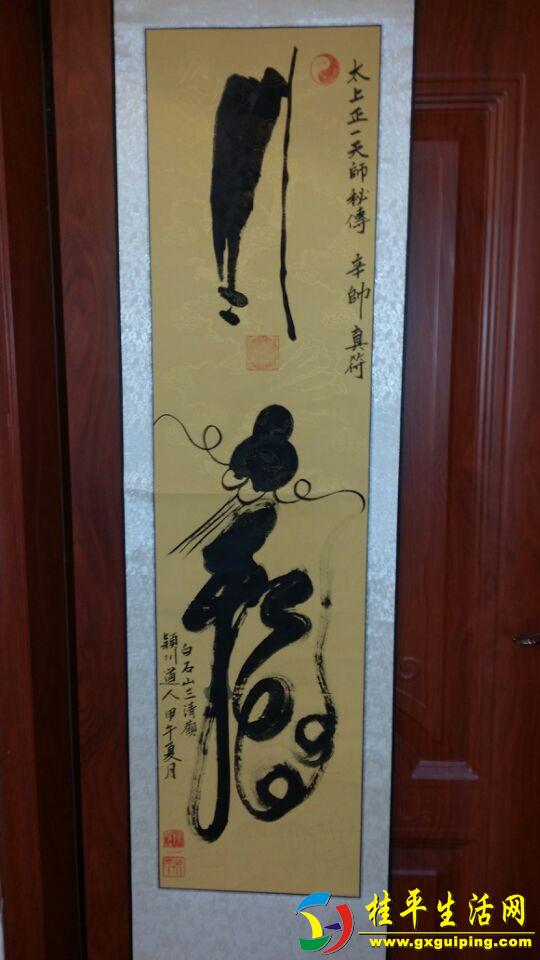 太上正一天師秘傳 辛帥真符
白石山三清嶺
穎川道人甲午夏月
桂平生活网
www.gxguiping.com